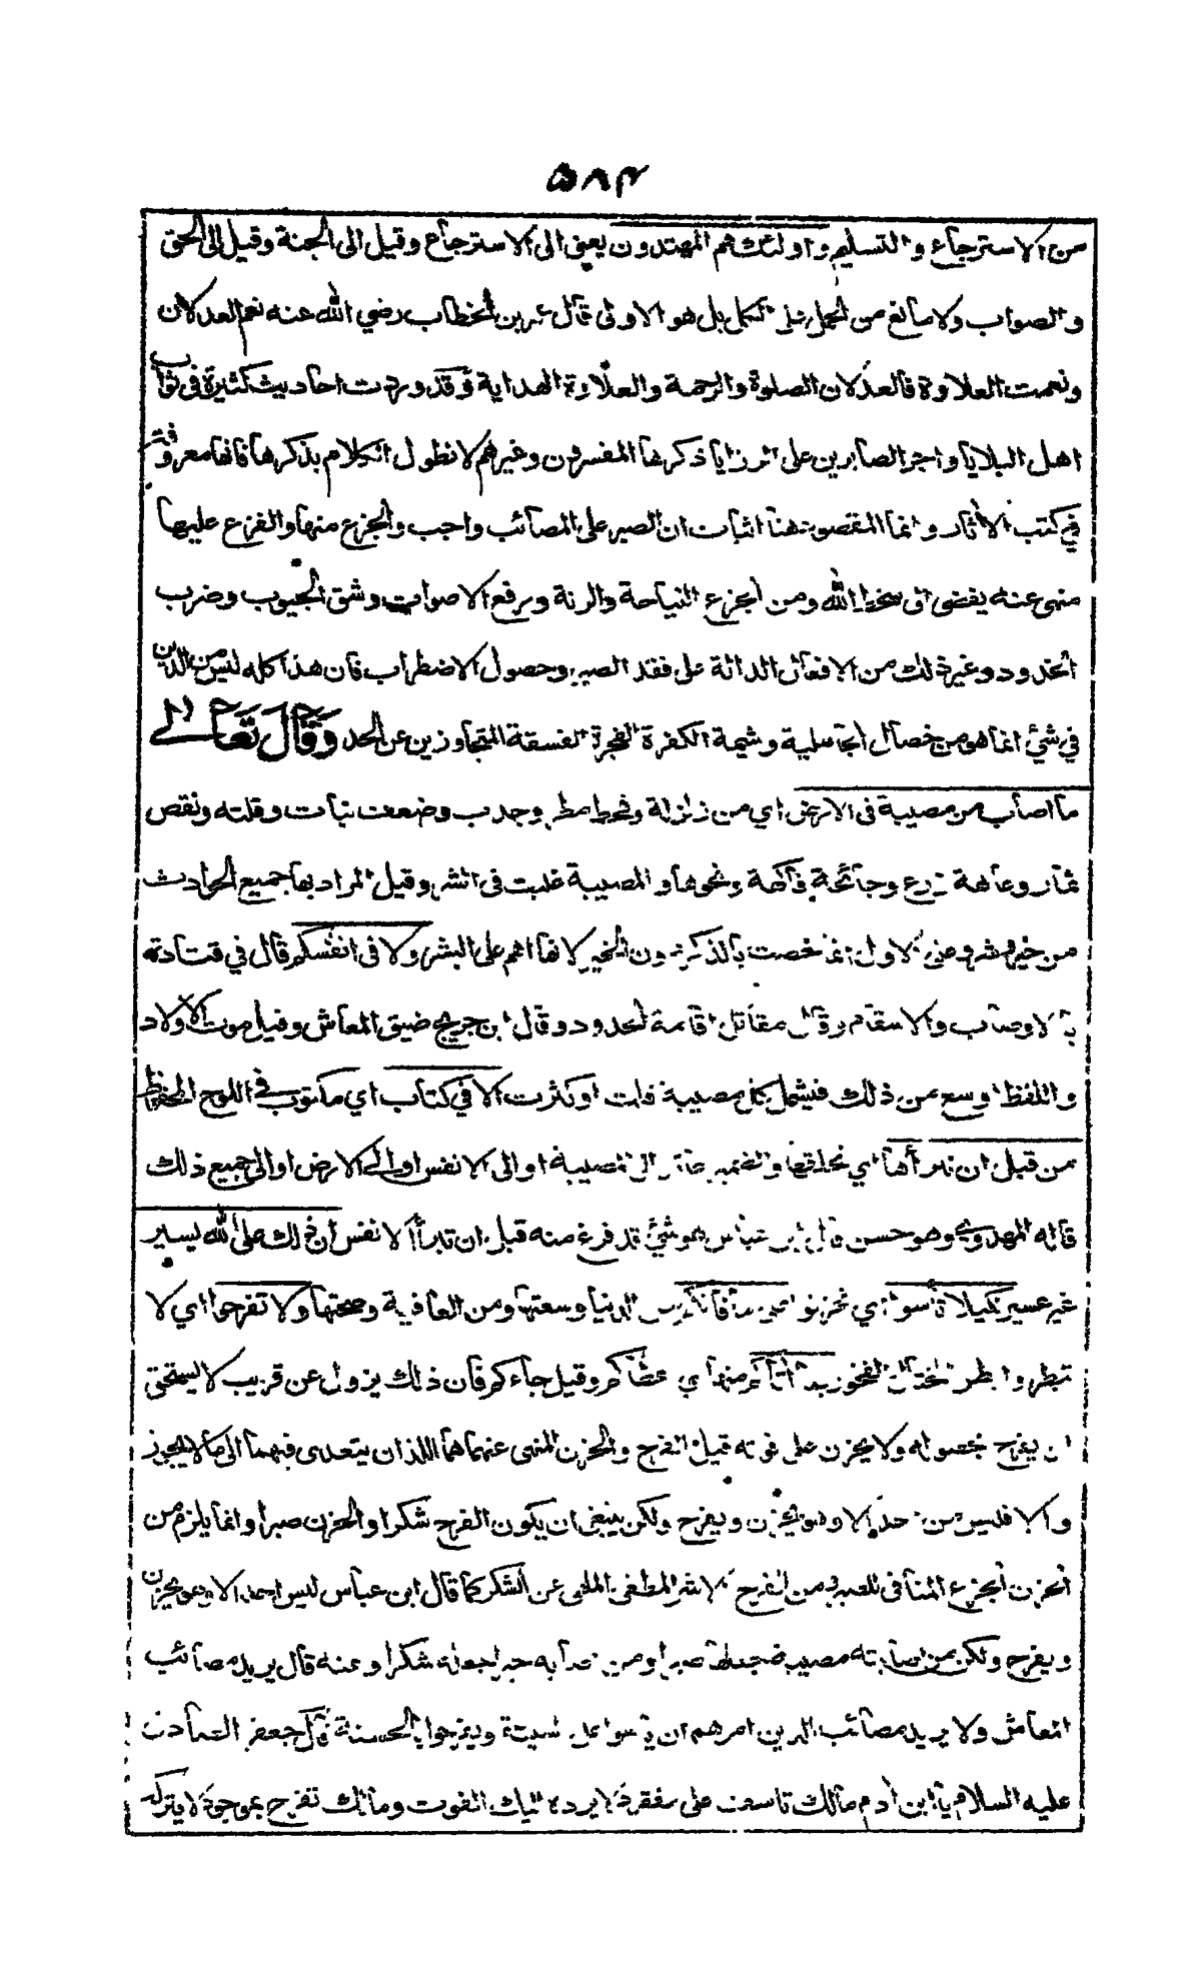 ٥٨٣
من الاسترجاع والتسليم واولئك هم المهتدون يعني الى الاسترجاع وقيل الى الجنة وقيل الى الحق
والصواب ولا مانع من الحمل على الكل بل هو الاولى قال عمر بن الخطاب رضي الله عنه نعم العدلان
ونعمت العلاوة فالعدلان الصلوة والرحمة والعلاوة الهداية وقد وردت احاديث كثيرة في ثواب
اهل البلايا واجر الصابرين على الرزايا ذكرها المفسرون وغيرهم لا نطول الكلام بذكرها فانها معروفة
في كتب الآثار وانما المقصود هنا اثبات ان الصبر على المصائب واجب والجزع منها والفزع عليها
منهى عنه يفضى الى سخط الله ومن الجزع النياحة والرنة ورفع الاصوات وشق الجيوب وضرب
الخدود وغير ذلك من الافعال الدالة على فقد الصبر وحصول الاضطراب فان هذا كله ليس من الدين
في شئ انما هو من خصال الجاهلية وشيمة الكفرة الفجرة الفسقة المتجاوزين عن الحد وقال تعالى
ما اصاب من مصيبة فى الارض اي من زلزلة وقحط مطر وجدب وضعف نبات وقلته ونقص
ثمار وعاهة زرع وجائحة فاكهة ونحوها والمصيبة غلبت فى الشر وقيل المراد بها جميع الحوادث
من خير وشر وعلى الاول انما خصت بالذكر دون الخير لانها اهم على البشر ولا فى انفسكم قال في قتادة
بالاوصاب والاسقام وقال مقاتل اقامة الحدود وقال ابن جريج ضيق المعاش وقيل موت الاولاد
واللفظ اوسع من ذلك فيشمل كل مصيبة قلت او كثرت الا في كتاب اي مكتوب في اللوح المحفوظ
من قبل ان نبرأها اي نخلقها والضمير عائد الى المصيبة او الى الانفس او الى الارض او الى جميع ذلك
قاله المهدوي وهو حسن قال ابن عباس هو شئ قد فرغ منه قبل ان تبرأ الانفس ان ذلك على الله يسير
غير عسير لكيلا تأسوا اي تحزنوا على ما فاتكم من الدنيا وسعتها ومن العافية وصحتها ولا تفرحوا اي لا
تبطروا بطر المختال الفخور بما اتاكم منها اي اعطاكم وقيل جاءكم فان ذلك يزول عن قريب لا يستحق
ان يفرح بحصوله ولا يحزن على فوته قيل الفرح والحزن المنهى عنهما هما اللذان يتعدى فيهما الى ما لا يجوز
والا فليس من احد الا وهو يحزن ويفرح ولكن ينبغي ان يكون الفرح شكرا والحزن صبرا وانما يلزم من
الحزن الجزع المنافي للصبر ومن الفرح الاشر المطغى الملهى عن الشكر كما قال ابن عباس ليس احد الا وهو يحزن
ويفرح ولكن من اصابته مصيبة فجعلها صبرا ومن اصابه خير جعله شكرا وعنه قال يريد مصائب
المعاش ولا يريد مصائب الدين امرهم ان ياسوا على السيئة ويفرحوا بالحسنة قال جعفر الصادق
عليه السلام يا ابن ادم مالك تاسف على مفقود لا يرده اليك الفوت ومالك تفرح بموجود لا يتركه